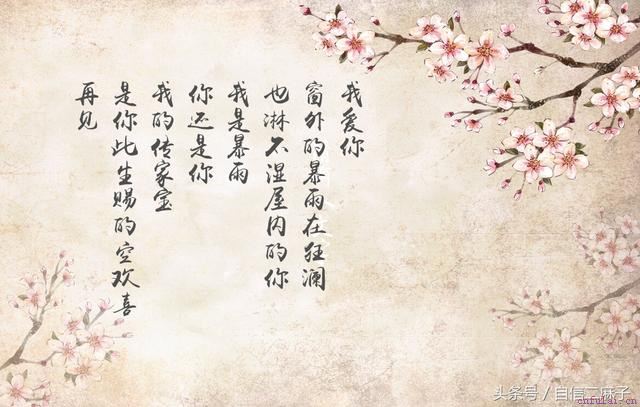 我爱你
窗外的暴雨在狂澜
也淋不湿屋内的你
我是暴雨
你还是你
我的传家宝
是你此生赐的空欢喜
再见
头条号 / 自信二麻子
cnfulai.cn